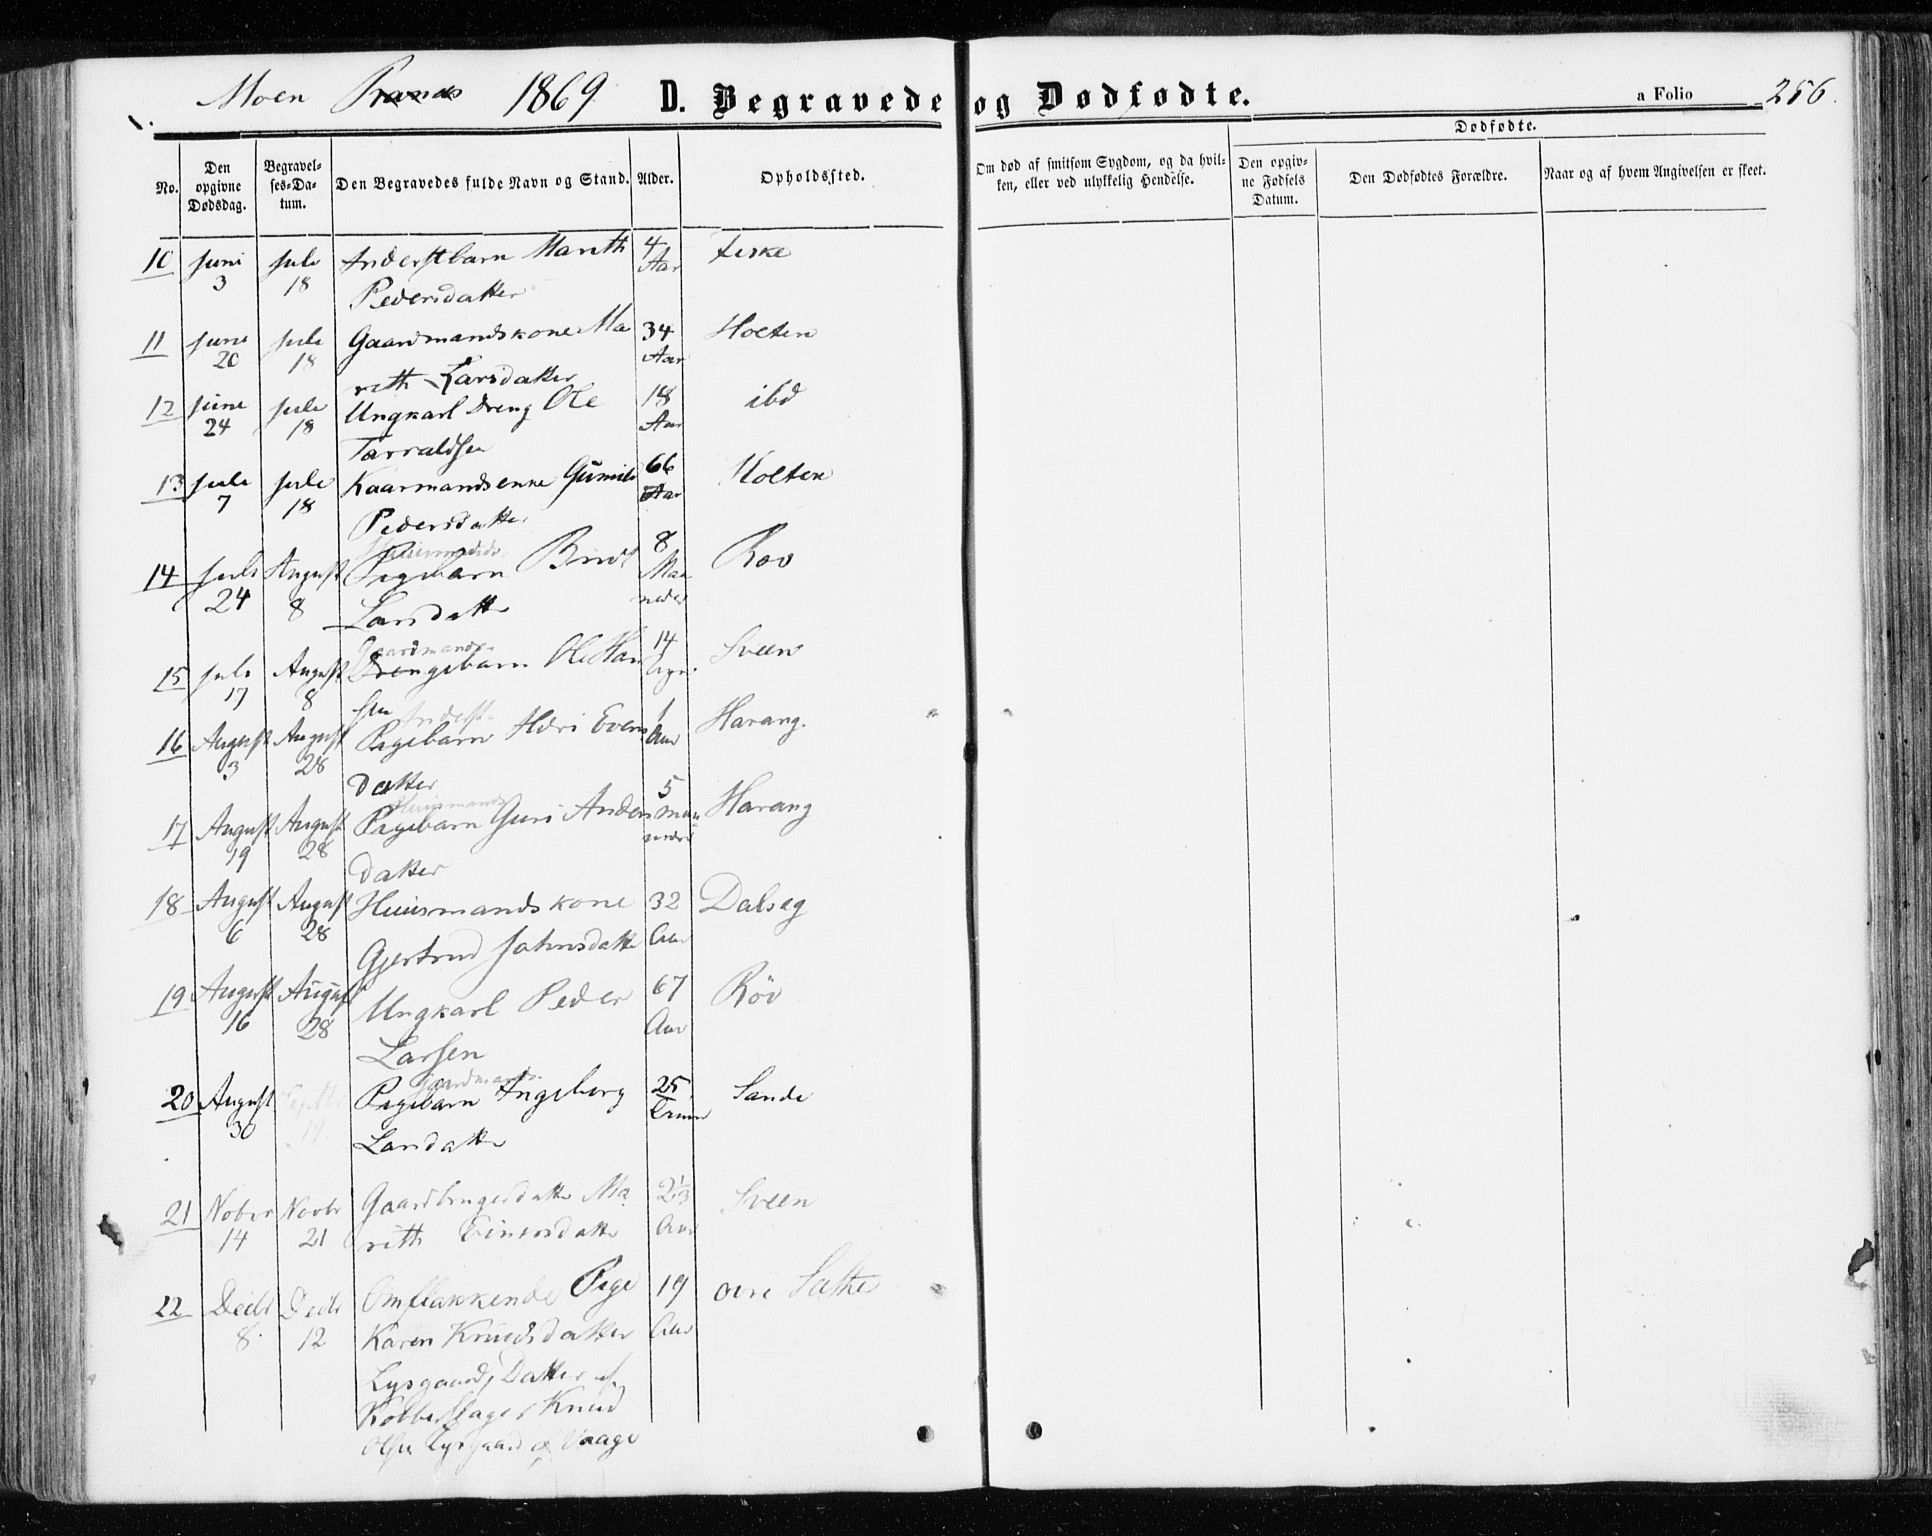 Moen 1869 D. Begravede og Dødfødte. a Folio 256.
Dødfødte.
No. Den opgivne Dødsdag. Begravelses-Datum. Den Begravedes fulde Navn og Stand. Alder. Opholdssted. Om død af smitsom Sygdom, og da hvilken, eller ved ulykkelig Hendelse. Den opgivne Fødsels Datum. Den Dødfødtes Forældre. Naar og af hvem Angivelsen er skeet.
10 Juni 3 Juli 18 Inderstbarn Mareth 4 Aar
Pedersdatter
11 Juni 20 Juli 18 Gaardmandskone Ma 34 Aar Holten
reth Larsdatter
12 Juni 24 Juli 18 Ungkarl Dreng Ole 18 Aar ibd
Tarraldsen
13 Juli 7 Juli 18 Kaarmandsenke Gunild 66 Aar Holten
Pedersdatter
Huusmands-
14 Juli 24 August 8 Pigebarn Brit 8 Maaneder Røv
Larsdatter
Gaardmands-
15 Juli 17 August 8 Drengebarn Ole Han 14 Sveen
sen
Inderst-
16 August 3 August 28 Pigebarn Evens 1 Aar Harang.
datter
Huusmands
17 August 19 August 28 Pigebarn Guri Anders 5 Maaneder Harang
datter
18 August 6 August 28 Huusmandskone 32 Aar Dalseg
Gjertrud Johnsdatter
19 August 16 August 28 Ungkarl Peder 67 Aar Röv
Larsen
Gaardmands-
20 August 30 Septbr 19. Pigebarn Ingeborg 25 Sande
Larsdatter
21 Novbr 14 Novbr 21 Gaardbrugerdatter Ma 2 1/3 Aar Sveen
rith Einersdatter
22 Decbr 8. Decbr 12 Omflakkende Pige 19 Aar øvre Sæther
Karen Knudsdatter
Lysgaard, Datter af
Kobberslager Knud
Olsen Lysgaard